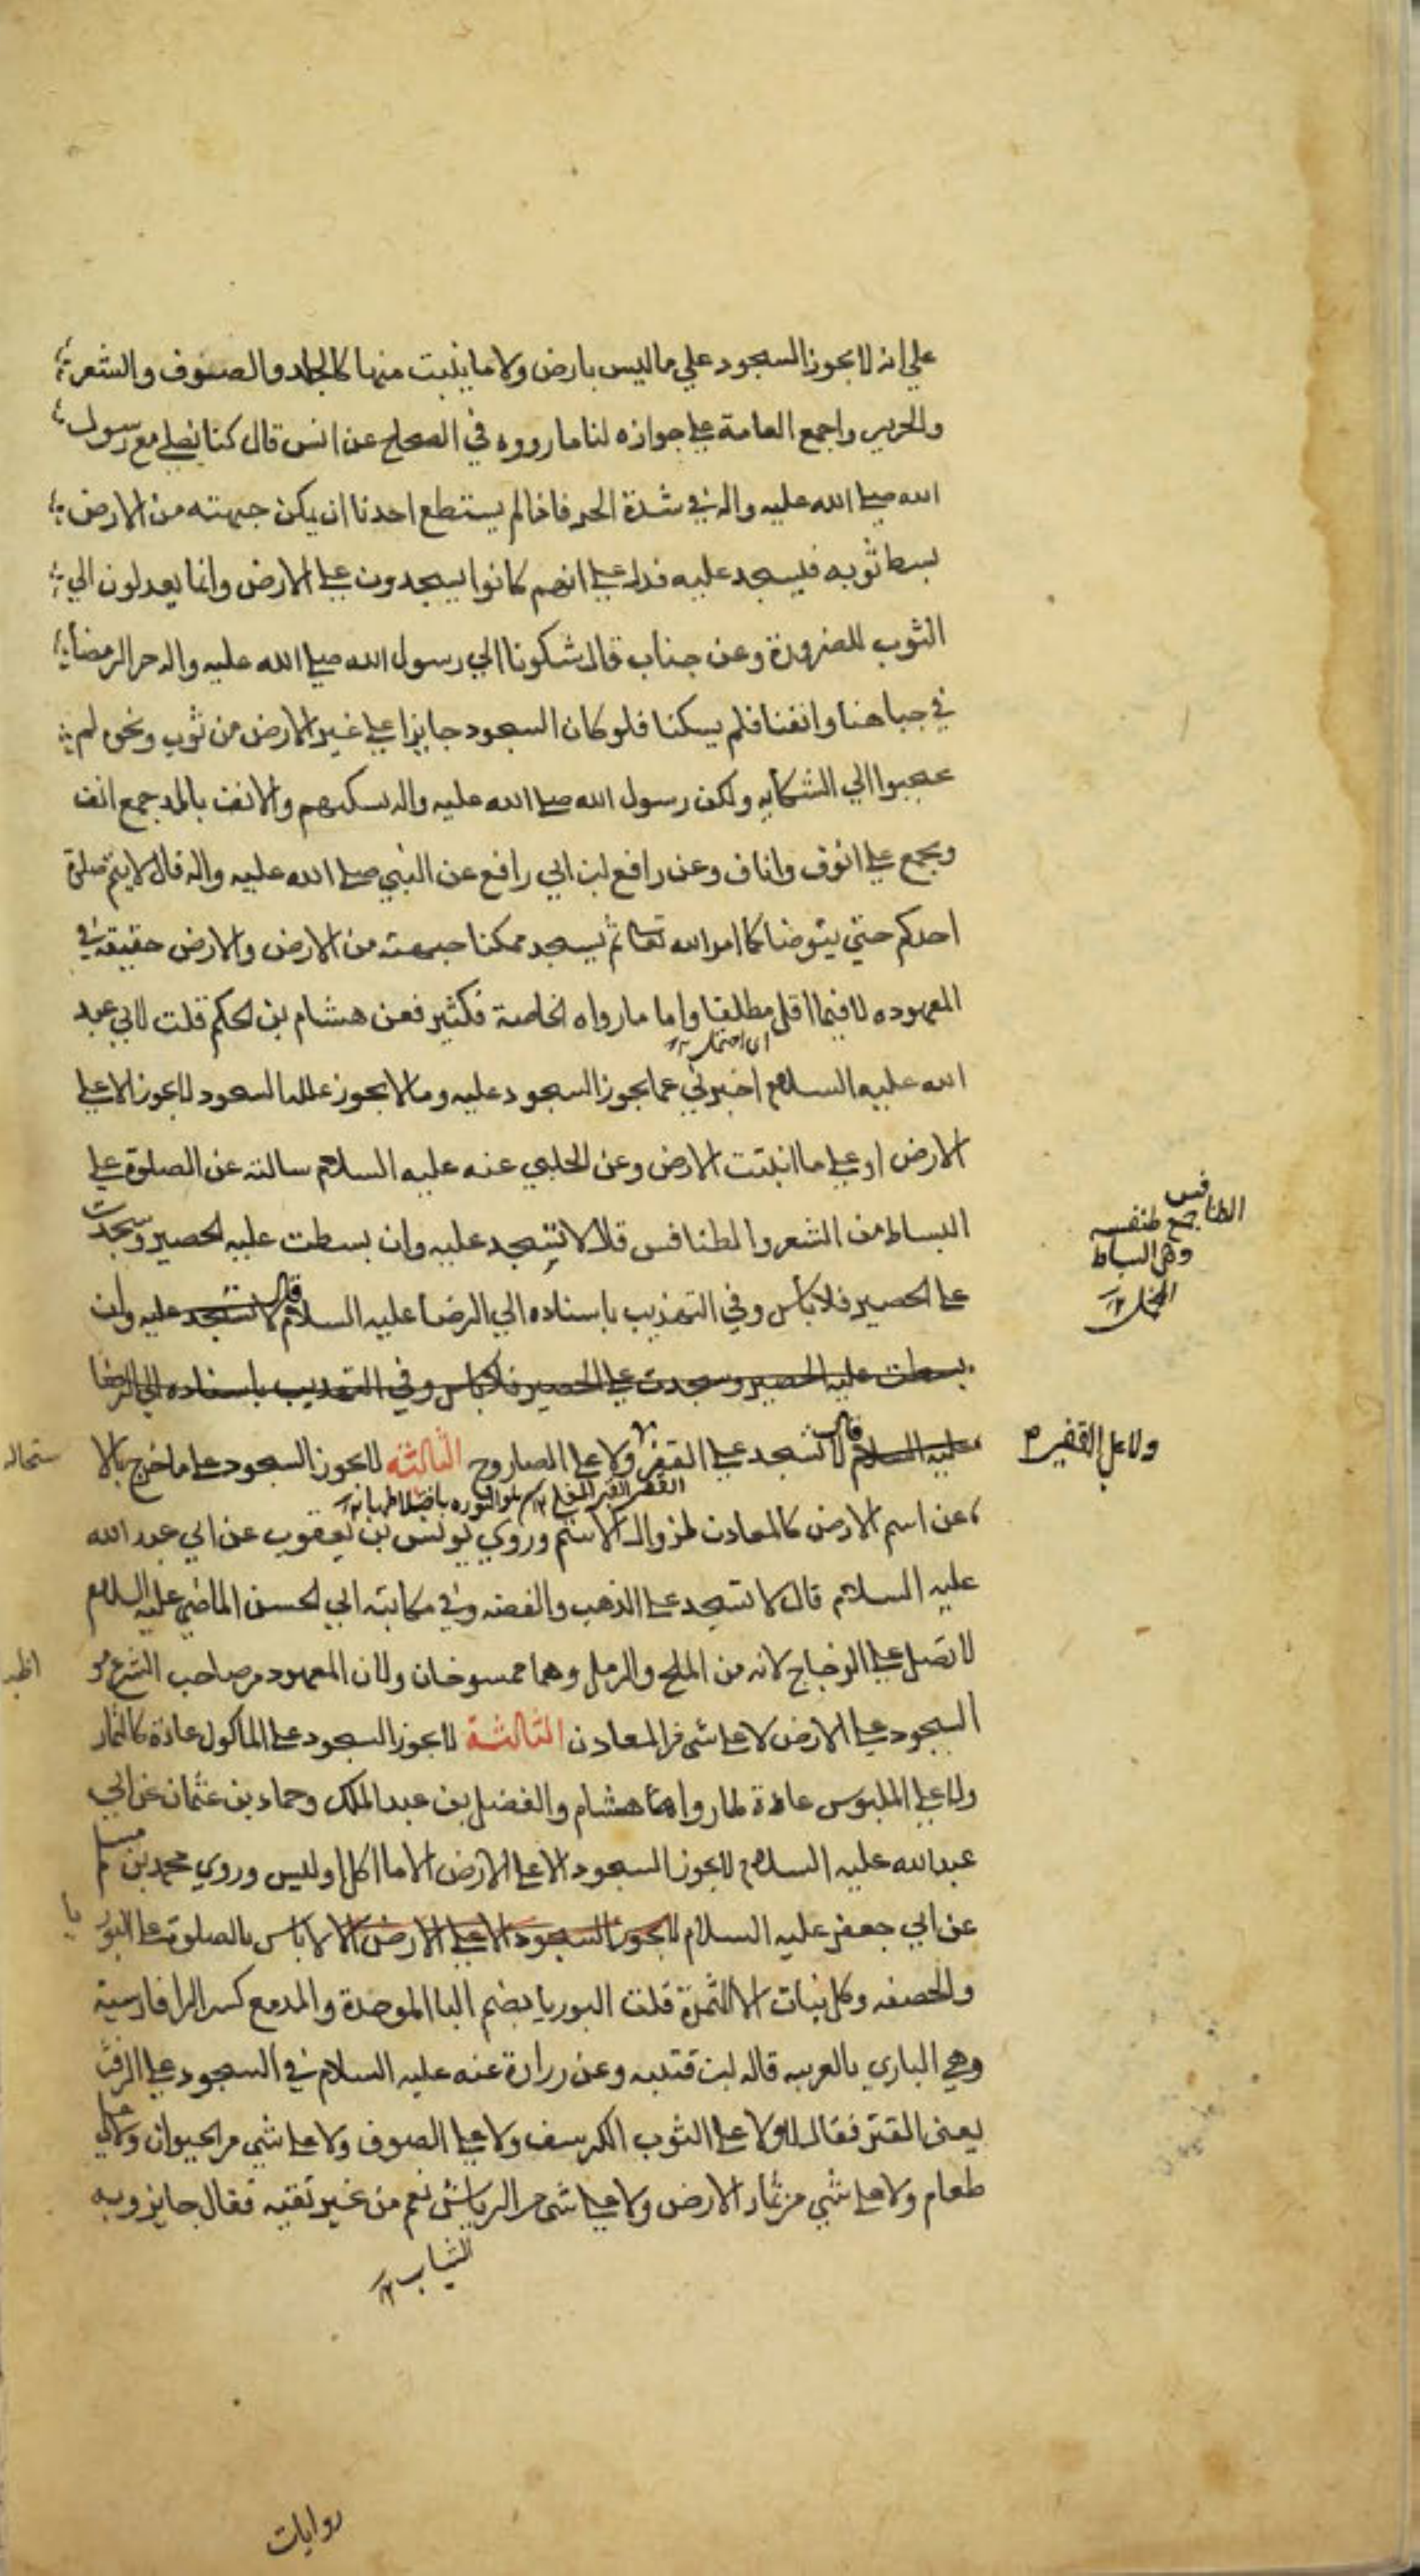 علي انه لا يجوز السجود علي ما ليس بارض ولا ما ينبت منها كالجلد والصوف والشعر
والحرير واجمع العامة علي جوازه لنا ما رووه في الصحاح عن انس قال كنا نصلي مع رسول
الله صلي الله عليه واله في شدة الحر فاذا لم يستطع احدنا ان يمكن جبهته من الارض
بسط ثوبه فيسجد عليه فدل علي انهم كانوا يسجدون علي الارض وانما يعدلون الي
الثوب للضرورة وعن جناب قال شكونا الي رسول الله صلي الله عليه واله حر الرمضا
في جباهنا وانفنا فلم يسكنا فلو كان السجود جايزا علي غير الارض من ثوب ونحوه لم
الي الشكايه ولكن رسول الله صلي الله عليه واله يسكنهم والانف بالمد جمع انف
ويجمع علي انوف واناف وعن رافع ابن ابي رافع عن النبي صلي الله عليه واله قال لا يتم صلوة
احدكم حتي يتوضا كما امر الله تعالي ثم يسجد ممكنا جبهته من الارض والارض حقيقة في
المعهوده لا فيما اقل مطلقا واما ما رواه الخاصة فكثير فعن هشام بن الحكم قلت لابي عبد
الله عليه السلام اخبرني عما يجوز السجود عليه وما لا يجوز علل السجود لا يجوز الا علي
الارض او علي ما انبتت الارض وعن الحلبي عنه عليه السلام سالته عن الصلوة علي
البساط من الشعر والطنافس قال لا تسجد عليه وان بسطت عليه الحصير وسجدت
الطنافس
جمع طنفسه
وهي البساط
المخمل ١٢
علي الحصير فلا باس وفي التهذيب باسناده الي الرضا عليه السلام قال لا تسجد عليه وان
بسطت عليه الحصير وسجدت علي الحصير فلا باس وفي التهذيب باسناده الي الرضا
عليه السلام قال لا تسجد علي القفر ولا علي الصاروج الثالثه لا يجوز السجود علي ما خرج بالا
ستحاله
ولا علي القفير
عن اسم الارض كالمعادن لزوال الاسم وروي يونس بن يعقوب عن ابي عبد الله
عليه السلام قال لا تسجد علي الذهب والفضه وفي مكاتبة ابي الحسن الماضي عليه السلام
لا تصل علي الزجاج لانه من الملح والرمل وهما ممسوخان ولان المعهود من صاحب الشرع
السجود علي الارض لا علي شي من المعادن الثالثة لا يجوز السجود علي الماكول عادة كالثمار
ولا علي الملبوس عادة لما رواه هشام والفضل بن عبد الملك وحماد بن عثمان عن ابي
عبد الله عليه السلام لا يجوز السجود الا علي الارض الا ما اكل او لبس وروي محمد بن مسلم
عن ابي جعفر عليه السلام لا يجوز السجود الا علي الارض الا لا باس بالصلوة علي البور
يا
والخصفه وكل نبات الا الثمرة قلت البوريا بضم البا الموحدة والمد مع كسر الرا فارسية
وهي الباري بالعربيه قاله ابن قتيبه وعن زرارة عنه عليه السلام في السجود علي الزفت
يعني القير فقال لا ولا علي الثوب الكرسف ولا علي الصوف ولا علي شي من الحيوان ولا علي
طعام ولا علي شي من ثمار الارض ولا علي شي من الرياش نعم من غير تقيه فقال جايز وبه
الثياب ١٢
روايات